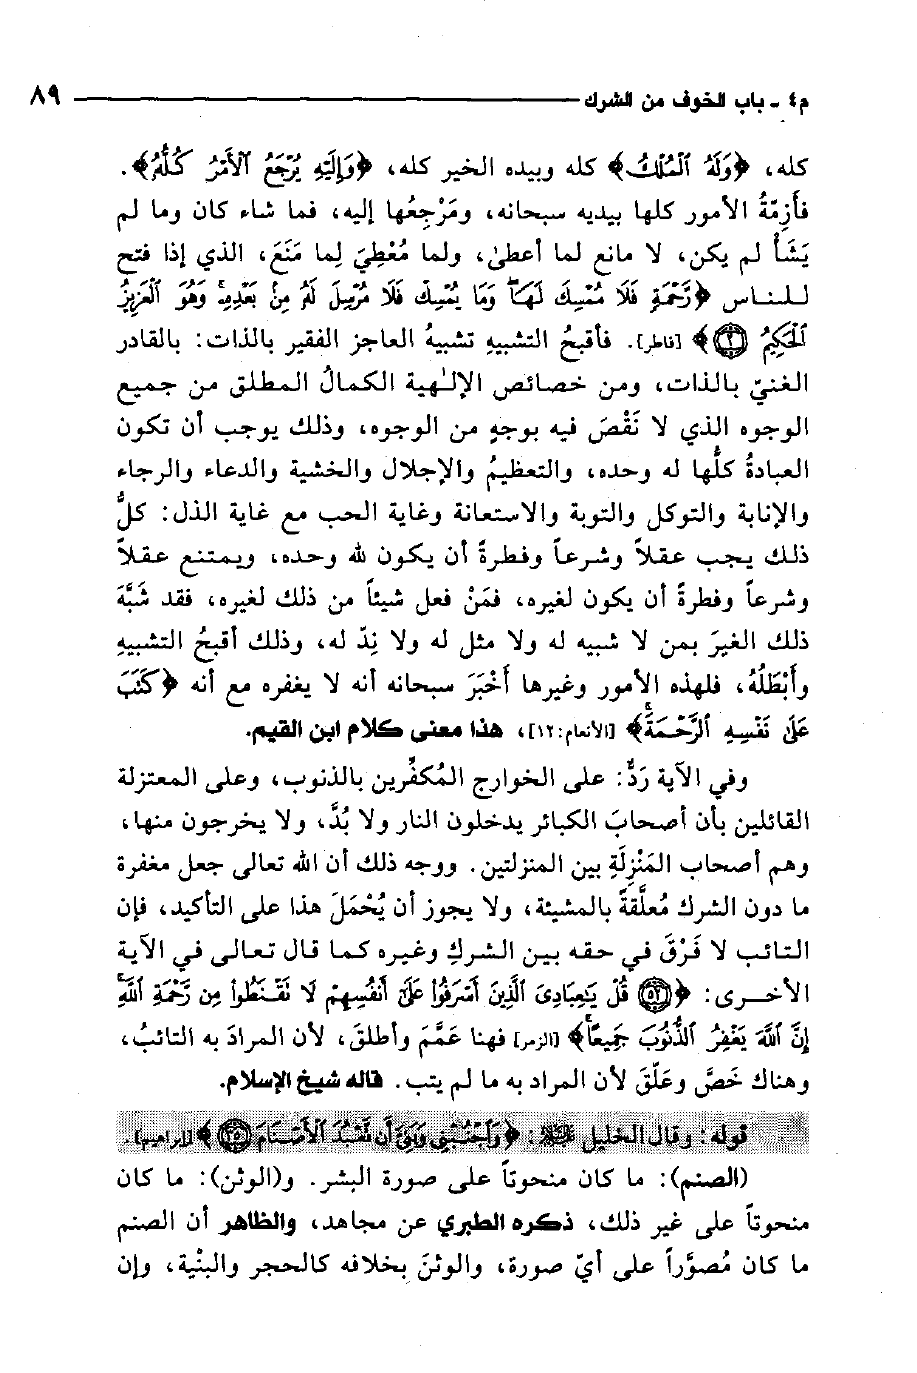 م٤ - باب الخوف من الشرك ٨٩
كله، ﴿وَلَهُ ٱلْمُلْكُ﴾ كله وبيده الخير كله، ﴿وَإِلَيْهِ يُرْجَعُ ٱلْأَمْرُ كُلُّهُ﴾.
فأزِمّةُ الأمور كلها بيديه سبحانه، ومَرْجِعُها إليه، فما شاء كان وما لم
يَشَأْ لم يكن، لا مانع لما أعطىٰ، ولما مُعْطِيَ لِما مَنَعَ، الذي إذا فتح
للناس ﴿رَّحْمَةٍ فَلَا مُمْسِكَ لَهَا ۖ وَمَا يُمْسِكْ فَلَا مُرْسِلَ لَهُ مِنۢ بَعْدِهِۦ ۚ وَهُوَ ٱلْعَزِيزُ
ٱلْحَكِيمُ ٢﴾ [فاطر]. فأقبحُ التشبيهِ تشبيهُ العاجز الفقير بالذات: بالقادر
الغنيّ بالذات، ومن خصائص الإلٰهية الكمالُ المطلق من جميع
الوجوه الذي لا نَقْصَ فيه بوجهٍ من الوجوه، وذلك يوجب أن تكون
العبادةُ كلُّها له وحده، والتعظيمُ والإجلال والخشية والدعاء والرجاء
والإنابة والتوكل والتوبة والاستعانة وغاية الحب مع غاية الذل: كلُّ
ذلك يجب عقلاً وشرعاً وفطرةً أن يكون لله وحده، ويمتنع عقلاً
وشرعاً وفطرةً أن يكون لغيره، فمَنْ فعل شيئاً من ذلك لغيره، فقد شَبَّهَ
ذلك الغيرَ بمن لا شبيه له ولا مثل له ولا نِدّ له، وذلك أقبحُ التشبيهِ
وأَبْطَلُهُ، فلهذه الأمور وغيرها أَخْبَرَ سبحانه أنه لا يغفره مع أنه ﴿كَتَبَ
عَلَىٰ نَفْسِهِ ٱلرَّحْمَةَ ۚ﴾ [الأنعام: ١٢]، هذا معنى كلام ابن القيم.
وفي الآية رَدٌّ: على الخوارج المُكفِّرين بالذنوب، وعلى المعتزلة
القائلين بأن أصحابَ الكبائر يدخلون النار ولا بُدَّ، ولا يخرجون منها،
وهم أصحاب المَنْزِلَةِ بين المنزلتين. ووجه ذلك أن الله تعالى جعل مغفرة
ما دون الشرك مُعلَّقةً بالمشيئة، ولا يجوز أن يُحْمَلَ هذا على التأكيد، فإن
التائب لا فَرْقَ في حقه بين الشركِ وغيره كما قال تعالى في الآية
الأخرى: ﴿٥٢ قُلْ يَٰعِبَادِىَ ٱلَّذِينَ أَسْرَفُوا۟ عَلَىٰٓ أَنفُسِهِمْ لَا تَقْنَطُوا۟ مِن رَّحْمَةِ ٱللَّهِ ۚ
إِنَّ ٱللَّهَ يَغْفِرُ ٱلذُّنُوبَ جَمِيعًا ۚ﴾ [الزمر] فهنا عَمَّمَ وأطلقَ، لأن المرادَ به التائبُ،
وهناك خَصَّ وعَلّقَ لأن المراد به ما لم يتب. قاله شيخ الإسلام.
قوله: وقال الخليل: ﴿وَٱجْنُبْنِى وَبَنِىَّ أَن نَّعْبُدَ ٱلْأَصْنَامَ ٣٥﴾ [إبراهيم].
(الصنم): ما كان منحوتاً على صورة البشر. و(الوثن): ما كان
منحوتاً على غير ذلك، ذكره الطبري عن مجاهد، والظاهر أن الصنم
ما كان مُصوَّراً على أيّ صورة، والوثنَ بخلافه كالحجر والبنْية، وإن